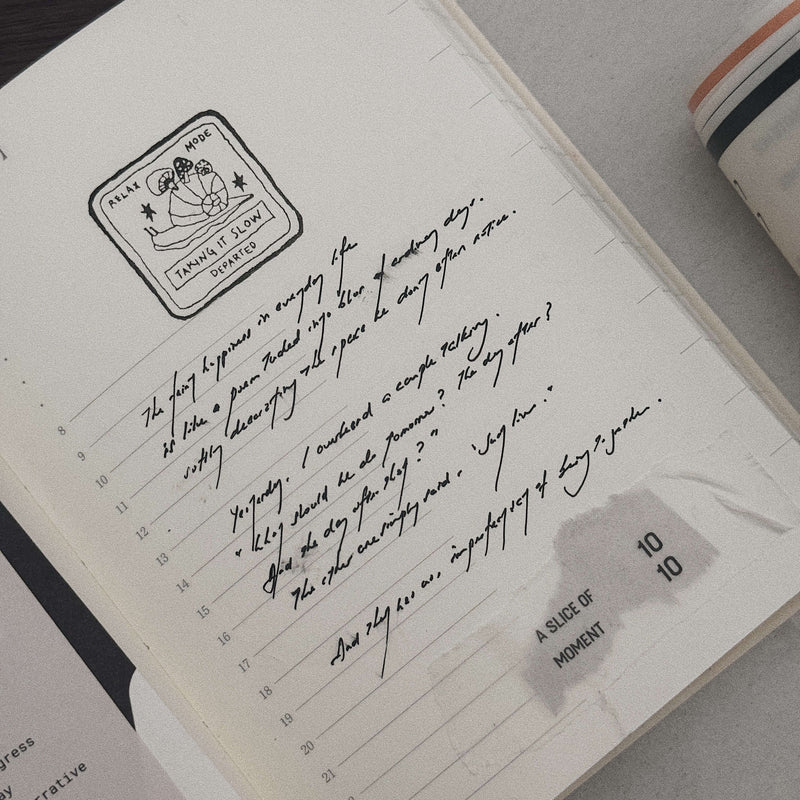 RELAX MODE
TAKING IT SLOW
DEPARTED
The tiny happiness in everyday life
is like a poem tucked into blur of ordinary days.
softly decorating the space we don't often notice.
Yesterday, I overheard a couple talking.
"What should we do tomorrow? The day after?
And the day after that?"
The other one simply said, "Just live."
And that was imperfectly of being together.
8
9
10
11
12
13
14
15
16
17
18
19
20
21
A SLICE OF
MOMENT
10
10
gress
ay
rrative